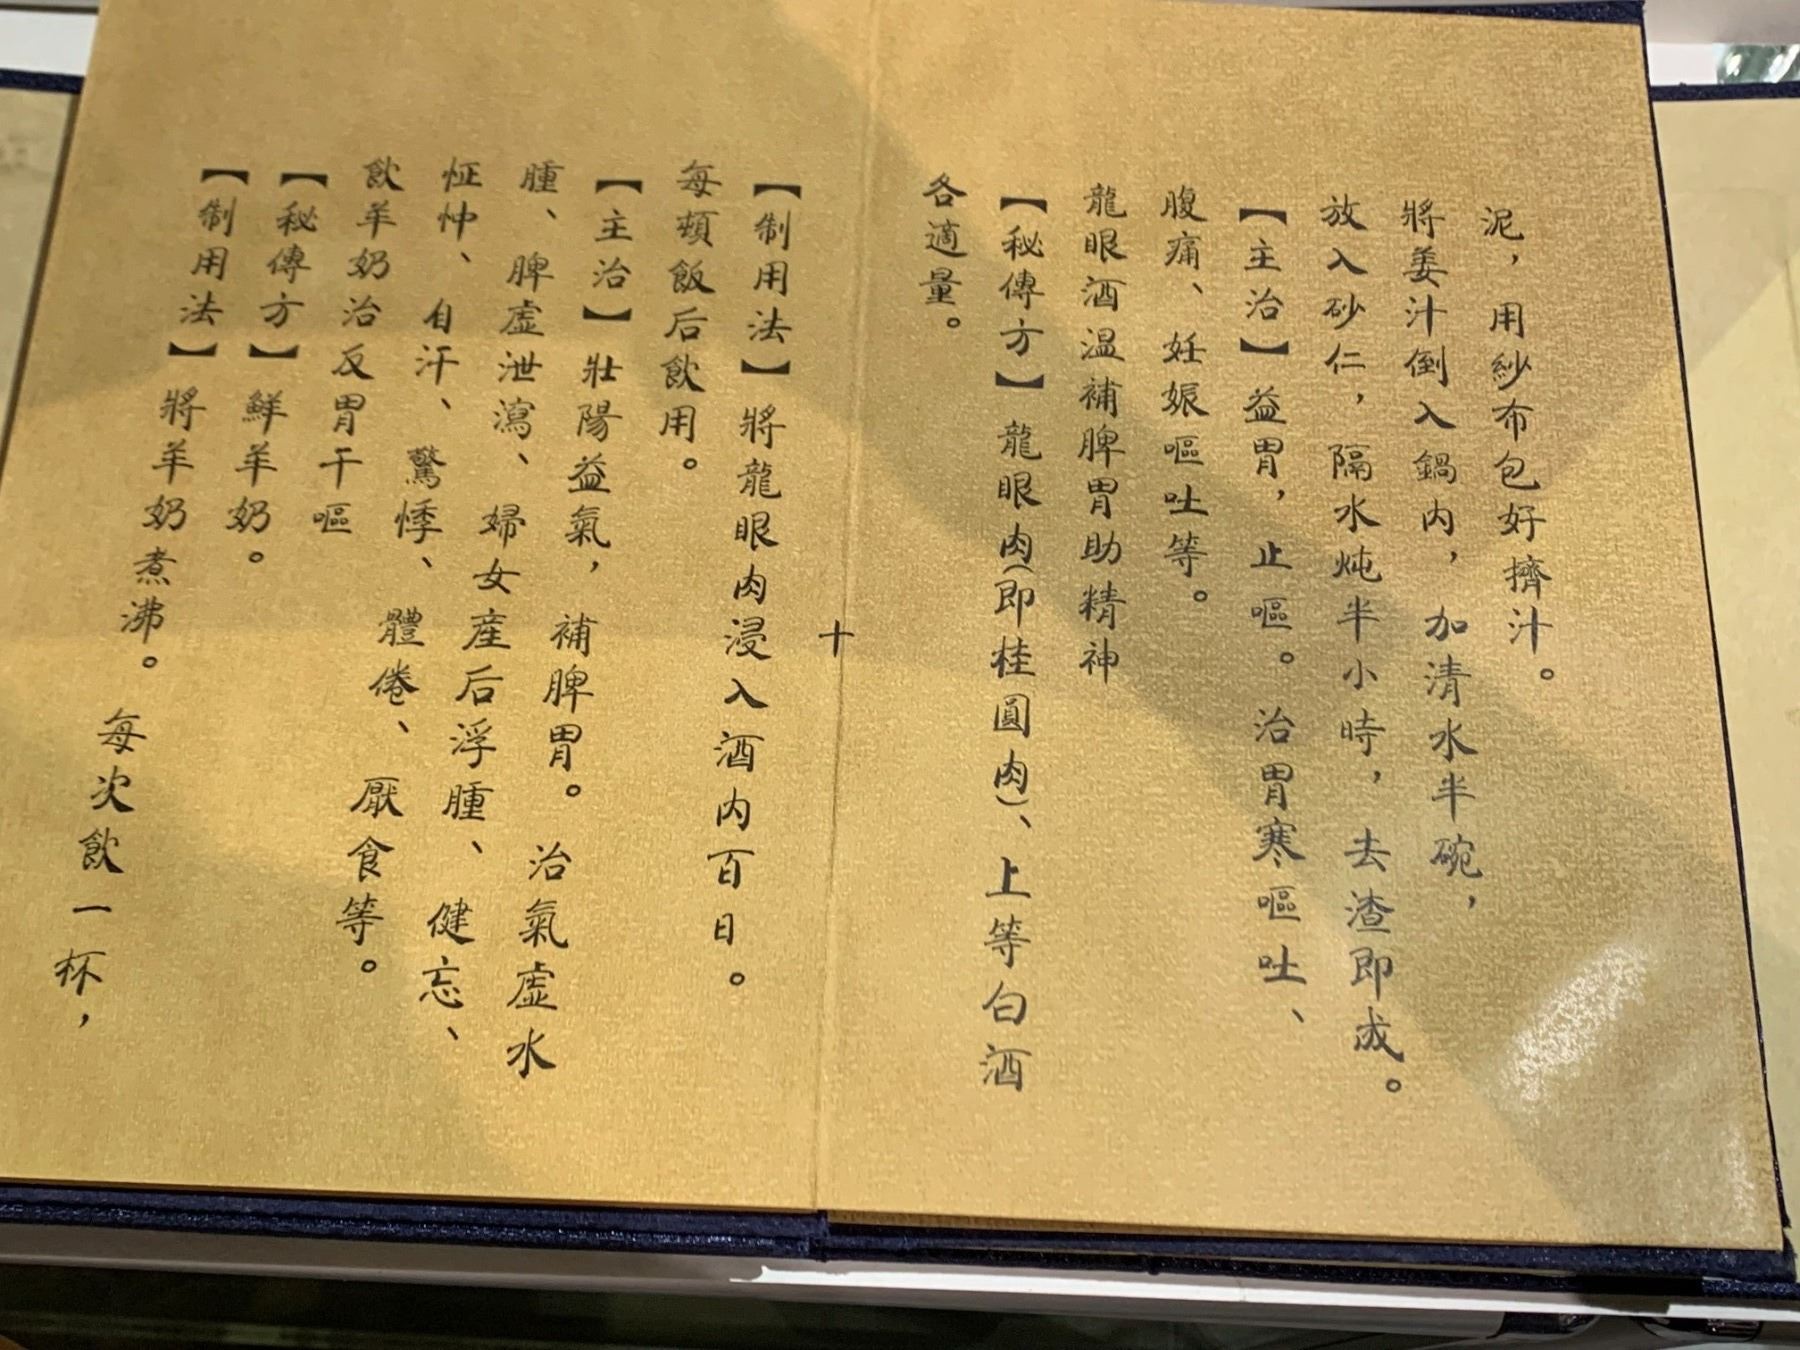 泥，用紗布包好擠汁。
將姜汁倒入鍋内，加清水半碗，
放入砂仁，隔水炖半小時，去渣即成。
【主治】益胃，止嘔。治胃寒嘔吐、
腹痛、妊娠嘔吐等。
龍眼酒温補脾胃助精神
【秘傳方】龍眼肉（即桂圓肉）、上等白酒
各適量。
十
【制用法】將龍眼肉浸入酒内百日。
每頓飯后飲用。
【主治】壯陽益氣，補脾胃。治氣虚水
腫、脾虚泄瀉、婦女産后浮腫、健忘、
怔忡、自汗、驚悸、體倦、厭食等。
飲羊奶治反胃干嘔
【秘傳方】鮮羊奶。
【制用法】將羊奶煮沸。每次飲一杯，